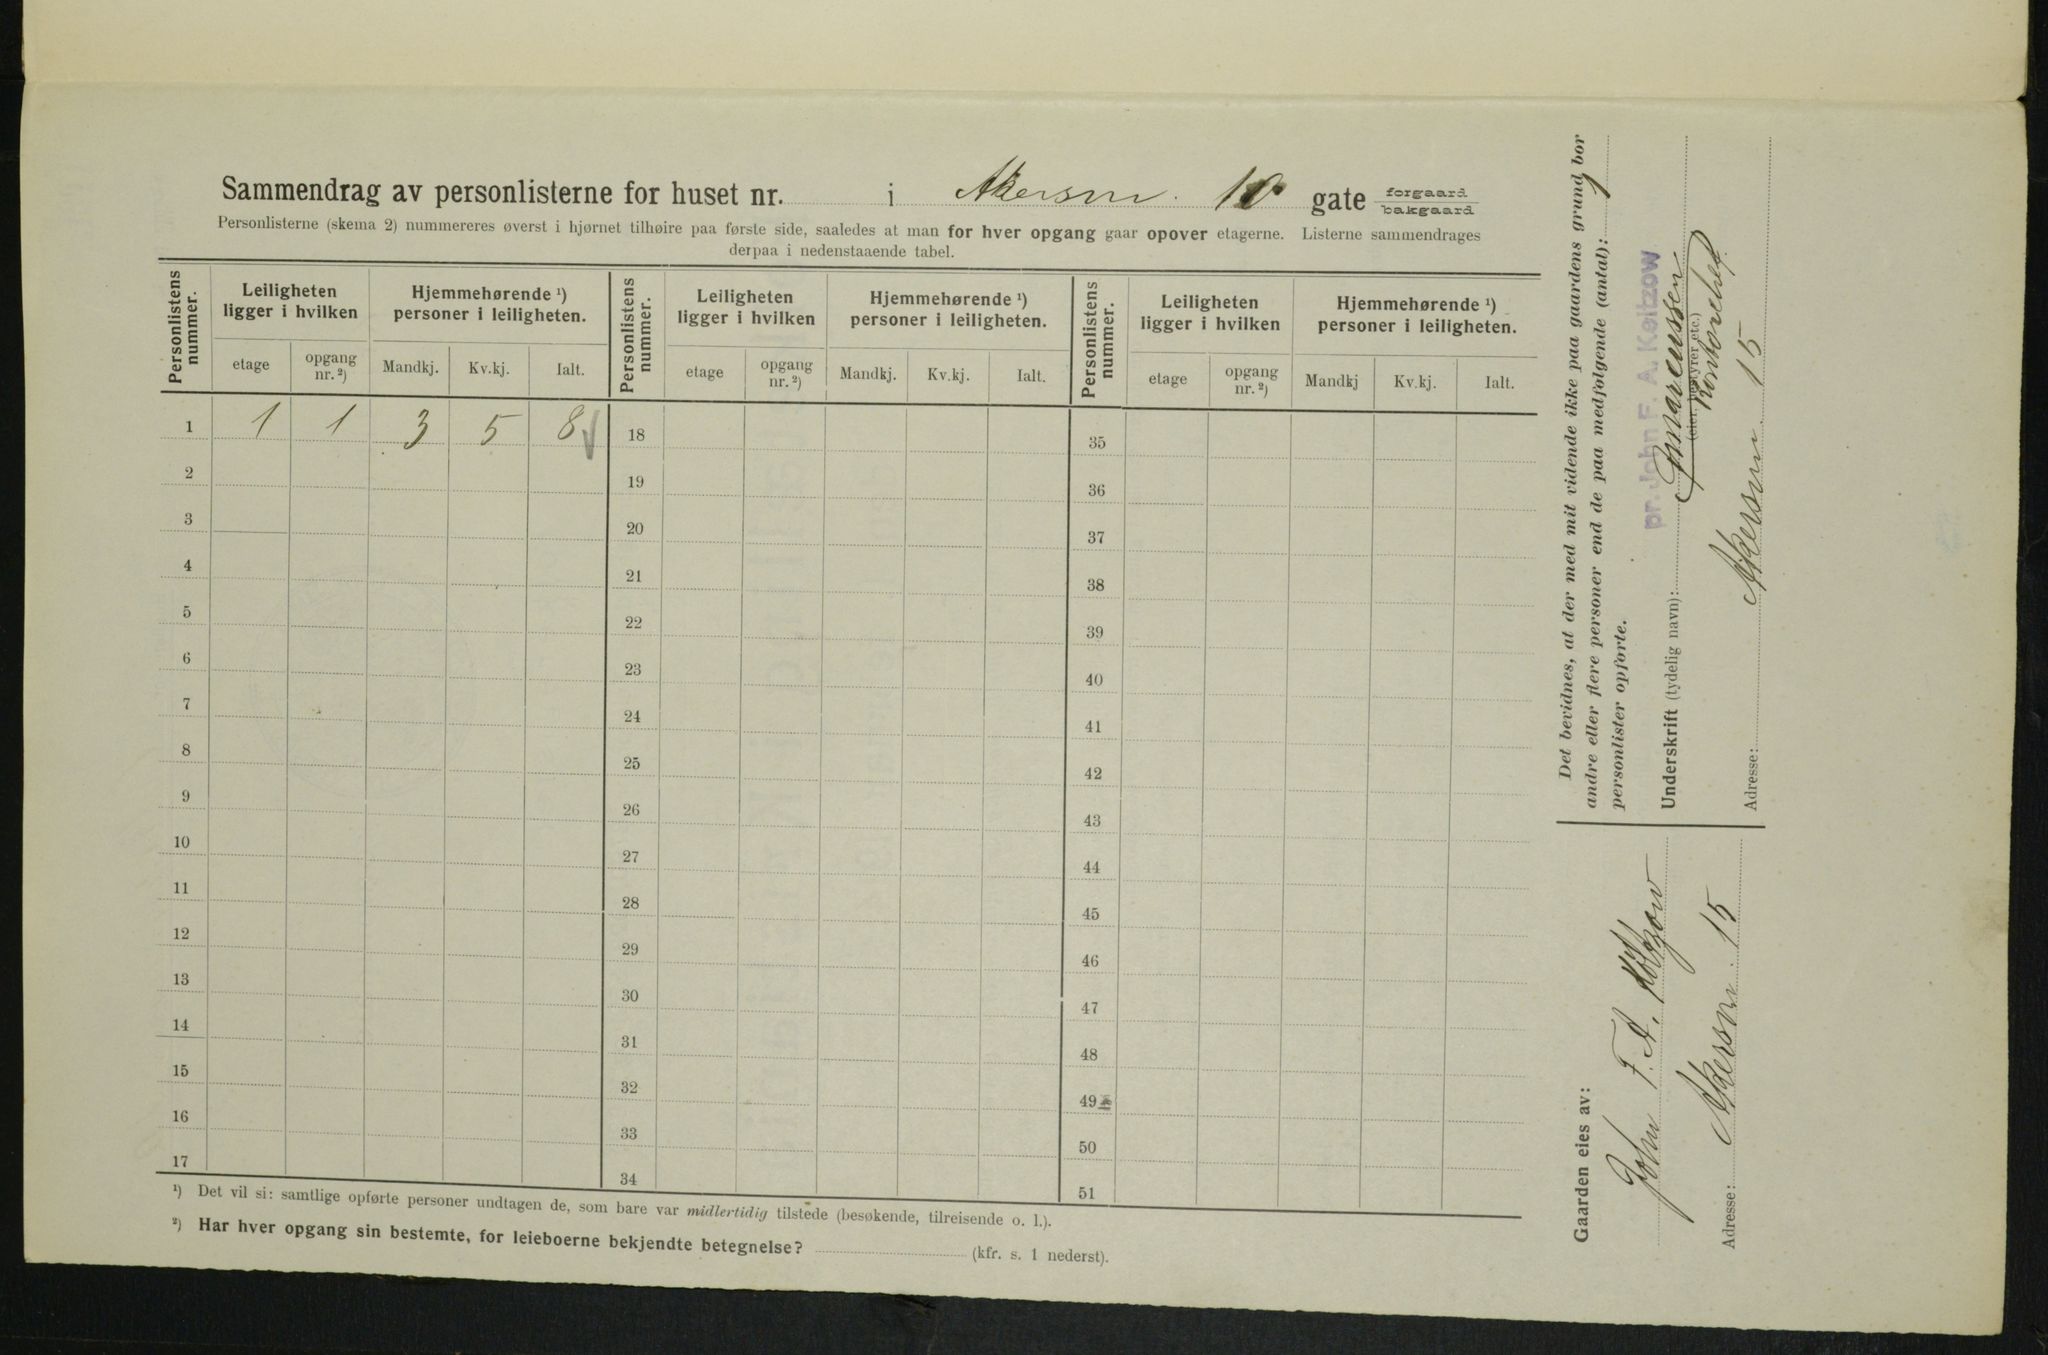 Sammendrag av personlisterne for huset nr. i Akersvn. 10 gate forgaard bakgaard
Personlisterne (skema 2) nummereres øverst i hjørnet tilhøire paa første side, saaledes at man for hver opgang gaar opover etagerne. Listerne sammendrages
derpaa i nedenstaaende tabel.
Personlistens nummer. Leiligheten ligger i hvilken Hjemmehørende ¹) personer i leiligheten. Personlistens nummer. Leiligheten ligger i hvilken Hjemmehørende ¹) personer i leiligheten. Personlistens nummer. Leiligheten ligger i hvilken Hjemmehørende ¹) personer i leiligheten.
etage opgang nr. ²) Mandkj. Kv.kj. Ialt. etage opgang nr. ²) Mandkj. Kv.kj. Ialt. etage opgang nr. ²) Mandkj Kv.kj. Ialt.
1 1 1 3 5 8 18 35
2 19 36
3 20 37
4 21 38
5 22 39
6 23 40
7 24 41
8 25 42
9 26 43
10 27 44
11 28 45
12 29 46
13 30 47
14 31 48
15 32 49
16 33 50
17 34 51
¹) Det vil si: samtlige opførte personer undtagen de, som bare var midlertidig tilstede (besøkende, tilreisende o. l.).
²) Har hver opgang sin bestemte, for leieboerne bekjendte betegnelse? (kfr. s. 1 nederst).
Det bevidnes, at der med mit vidende ikke paa gaardens grund bor
andre eller flere personer end de paa medfølgende (antal): 1
personlister opførte.
pr. John F. A. Koltzow
Underskrift (tydelig navn): Marcussen
(eier, bestyrer etc.)
Kontorchef.
Adresse: Akersvn. 15
Gaarden eies av:
John F. A. Koltzow
Adresse: Akersvn. 15